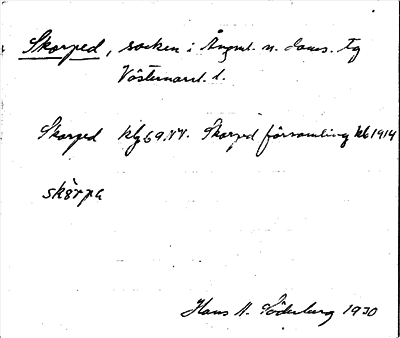 Skorped, socken i Ångml. n. doms. Tg
Västernorrl. l.
Skorped klg 69.77. Skorped församling kb 1914
skàrpa
Hans A. Söderberg 1930